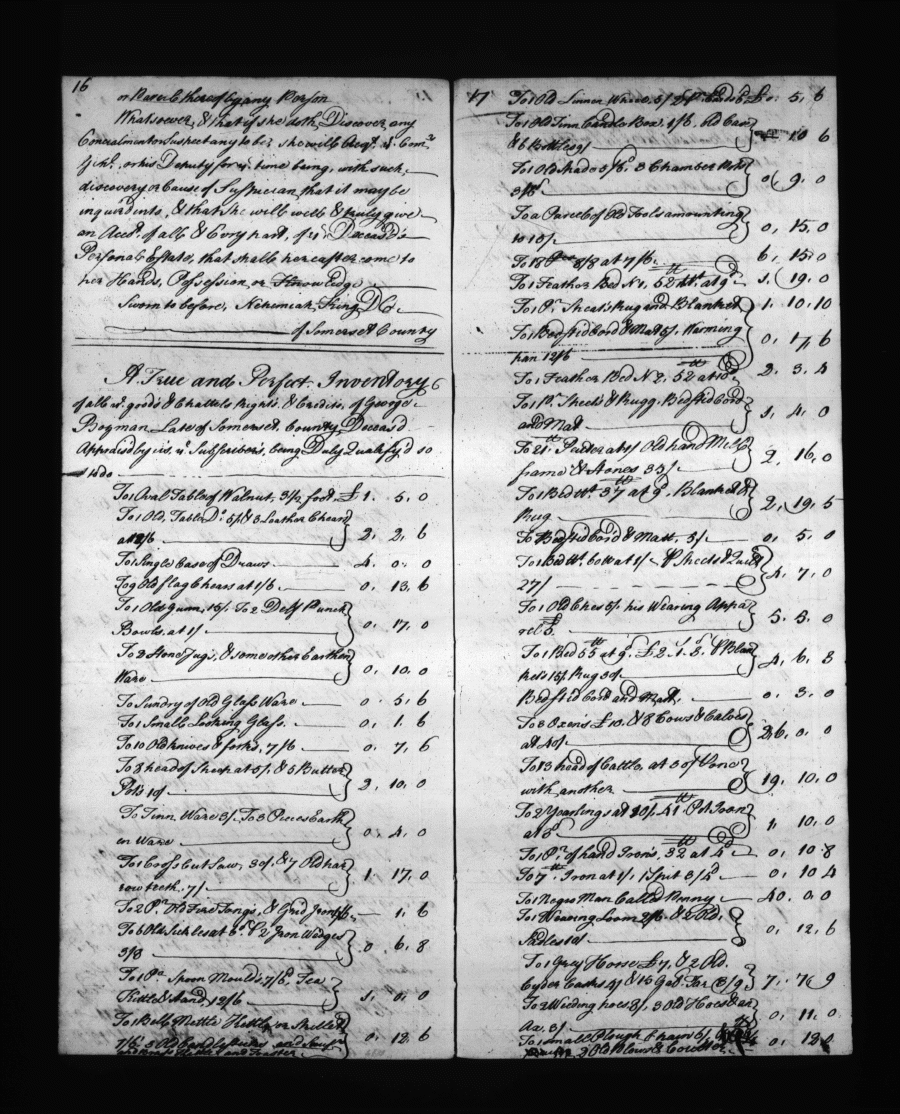 16
or Recd thereof by any Person
Whatsoever, & that if she doth Discover any
Concealment or Suspect any to be, she will Acqt. ye. Comy.
Genl. or his Deputy for ye. time being, with such
discovery or Cause of Suspician, that it may be
inquired into, & that she will well & truly give
an Acct. of all & Every part, of ye. Deceasd's
Personal Estate, that shall hereafter come to
her Hands, Possession, or Knowledge
Sworn to before, Nehemiah King D Co.
of Somerset County
A True and Perfect Inventory
of all ye. goods & Chattels Rights, & Credits, of George
Bozman Late of Somerset County Deceas'd
Appraised by us, ye. Subscribers, being Duly Qualify'd so
to do
To 1 Oval Table of Walnut, 3½ foot £ 1. 5. 0
To 1 Old Table Do. 5/ & 3 Leather Cheard
at 2. 2. 6
To 1 Single Case of Draws 4. 0. 0
To 9 Old flag Chears at 1/6 0. 13. 6
To 1 Old Gunn, 15/ To 2 Delf Punch
Bowls, at 1/ 0. 17. 0
To 3 Stone Jugs, & some other Earthen
Ware 0. 10. 0
To Sundry of Old Glass Ware 0. 5. 6
To 1 Small Looking Glass 0. 1. 6
To 10 Old knives & forks, 7/6 0. 7. 6
To 8 head of Sheep at 5/, & 5 Butter
Pots 10/ 2. 10. 0
To Tinn Ware 3/. To 3 Pieces Earth
en Ware 0. 4. 0
To 1 Cross Cut Saw, 30/, & 7 Old har
row teeth, 7/ 1. 17. 0
To 2 Pr. Old Fire Tongs, & Grid Iron 1. 6
To 6 Old Sickles at 6d. & 2 Iron Wedges
3/8 0. 6. 8
To 1 Pr. Spoon Moulds 7/6, Tea
Kettle & Stand, 12/6 1. 0. 0
To 1 Bell Mettle Kettle or Skillet
7/6, 3 Old Candlesticks and Snuf 0. 12. 6
17
To 1 Old Linnen Wheel, 5/ & Pr. Cards 6 £ 0. 5. 6
To 1 Old Tinn Candle Box, 1/6, Old Case
& 6 Bottles 9/ 10 6
To 1 Old Spade 5/6, 3 Chamber Pots
3/6 0. 9. 0
To a Parcel of Old Tools amounting
to 15/ 0. 15. 0
To 18 8/8 at 7/6 6. 15. 0
To 1 Feather Bed N 1, 52 Wt. at 9d. 1. 19. 0
To 1 Pr. Sheets Rug and Blanket 1. 10. 10
To 1 Bedstid Cord & Mat 5/. Warming
pan 12/6 0. 17. 6
To 1 Feather Bed N 2, 52 at 10d. 2. 3. 4
To 1 Pr. Sheets & Rugg, Bedstid Cord
and Mat 1. 4. 0
To 21 Pewter at 1/ Old hand Mill
frame & Stones 35/ 2. 16. 0
To 1 Bed Wt. 37 at 9d. Blanket &
Rug 2. 19. 5
To Bedstid Cord & Matt, 5/ 0. 5. 0
To 1 Bed Wt. 60 at 1/ Pr Sheets & Quilt
27/ 4. 7. 0
To 1 Old Chest 5/ his Wearing Appa
rel 5. 5. 5. 0
To 1 Bed 55 at 9d. £ 2. 1. 3. Pr Blan
kets 15/ Rug 30/ 4. 6. 8
Bedstid Cord and Matt, 0. 3. 0
To 3 Oxen's £ 10. & 8 Cows & Calves
at 40/ 26. 0. 0
To 13 head of Cattle, at 30/ One
with, another 19. 10. 0
To 2 Yearlings at 10/. 41 Pot Iron
at 3d. 1. 10. 0
To 1 Pr. of hand Irons, 32 at 4d. 0. 10. 8
To 7 Iron at 1/, 1 Spit 3/4 0. 10 4
To 1 Negro Man Called Penny 40. 0. 0
To 1 Weaving Loom 2/6. & 2 Old
Sadles 10/ 0. 12. 6
To 1 Grey Horse £ 7. & 2 Old
Cyder Casks 4/ & 15 Gall. Tar 3/9 7. 7 9
To 3 Weeding hoes 8/. 3 Old Hoes & an
Ax, 3/ 0. 11. 0
To 1 small Plough & Chain 6/ 0. 12
2 Old Plows & Coulter